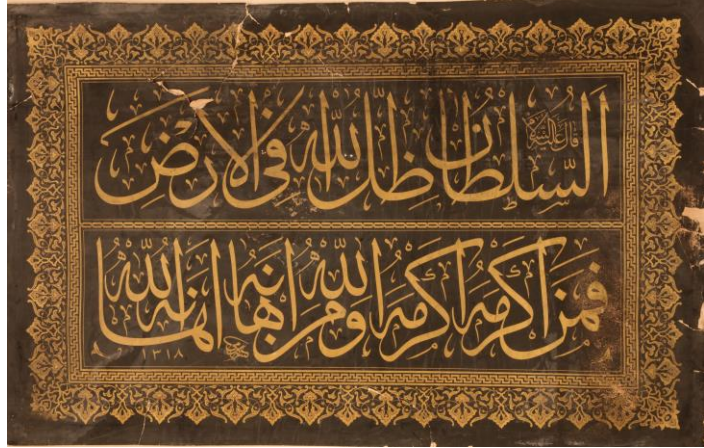 قال عليه السلام
السلطان ظل الله في الأرض
فمن اكرمه اكرمه الله ومن اهانه اهانه الله
١٣١٨